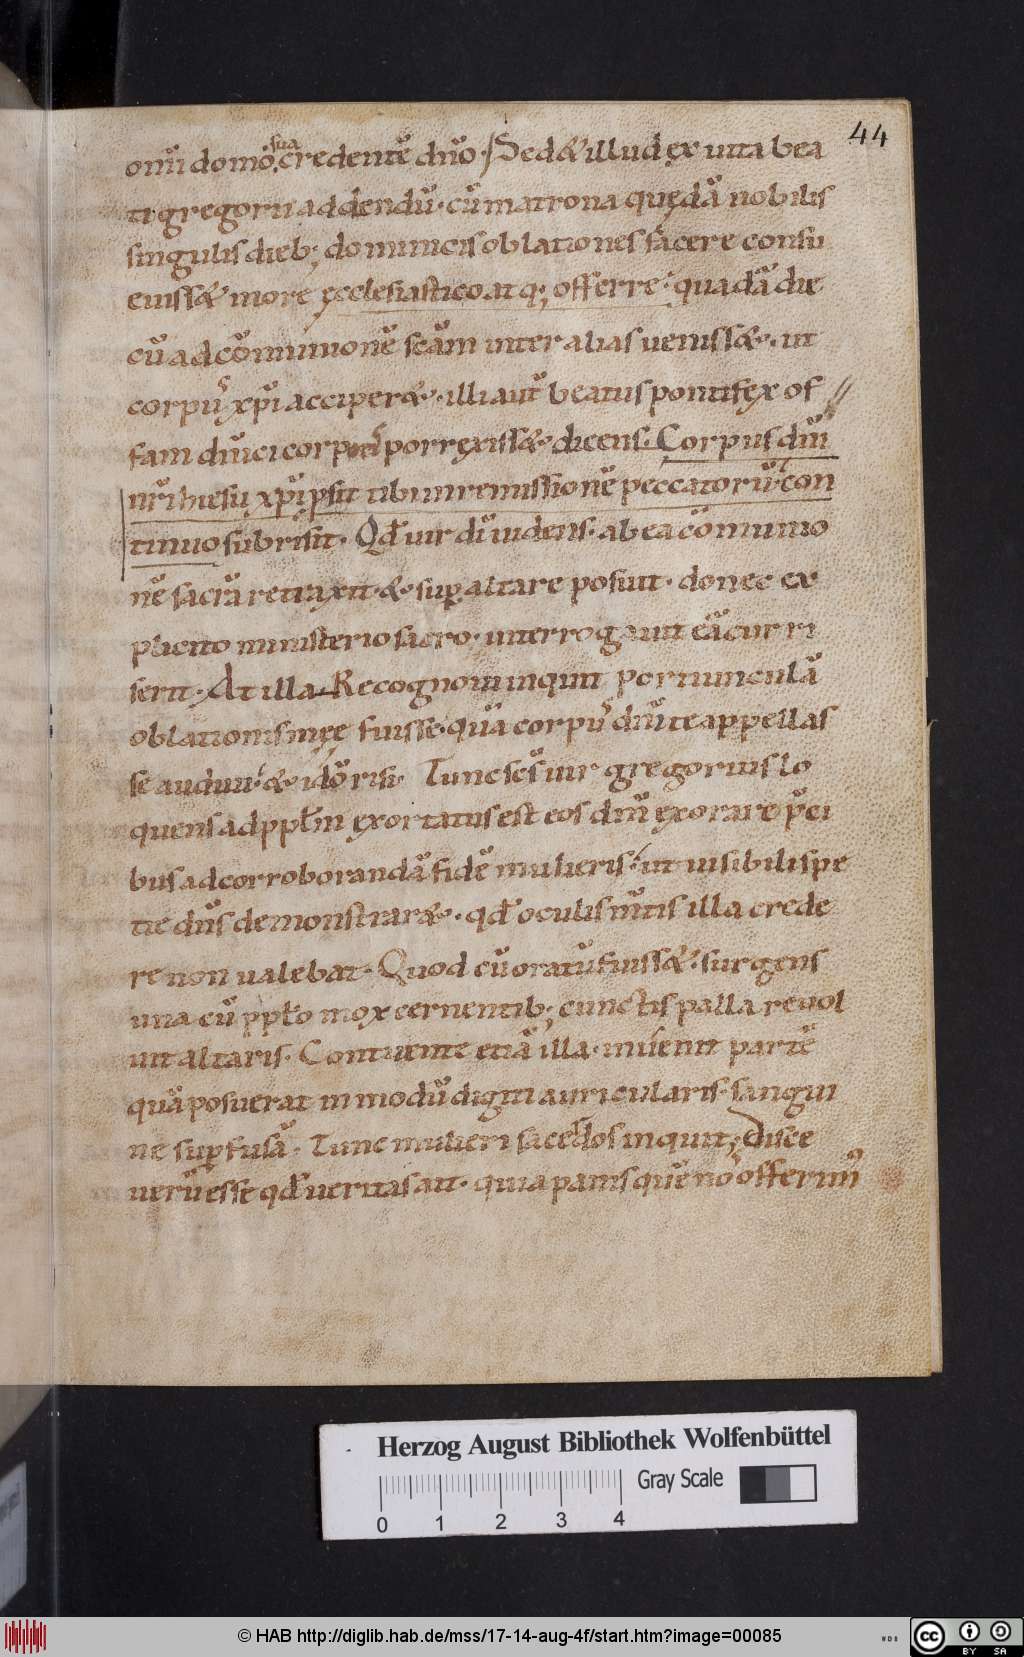 44
om̄i domo sua. credentē dn̄o. Sed & illud ex uita bea
ti gregorii addendū. cū matrona quędā nobilis
singulis dieb; dominicis oblationes facere consu
euiss& more ęcclesiastico atq; offerre. quadā die
cū ad cōmunionē scām inter alias ueniss&. ut
corpus xp̄i acciper&. illi aut̄ beatus pontifex of
fam dn̄ici corporis porrexiss& dicens. Corpus dn̄i
nr̄i ihesu xp̄i p̱sit tibi in remissionē peccatorū. con
tinuo subrisit. Qd̄ uir dī uidens. ab ea cōmunio
nē sacrā retraxit. & sup̱ altare posuit. donec ex
plicito ministerio sacro. interrogauit eā cur ri
serit. At illa. Recognoui inquit portiunculā
oblationis męę fuisse. quā corpus dn̄i te appellas
se audiui. & idō risi. Tunc scs̄ uir gregorius lo
quens ad ppl̄m exortatus est eos dn̄m exorare p̄ci
bus ad corroborandā fidē mulieris. ut uisibili spe
tie dn̄s demonstrar&. qd̄ oculis mn̄tis illa crede
re non ualebat. Quod cū oratū fuiss&. surgens
una cū ppl̄o mox cernentib; cunctis palla reuol
uit altaris. Contuente etiā illa. inuenit partē
quā posuerat in modū digiti auricularis. sangui
ne sup̱fusā. Tunc mulieri sacerdos inquit; Disce
uerū esse qd̄ ueritas ait. quia panis quē nos offerim̄
Herzog August Bibliothek Wolfenbüttel
Gray Scale
0 1 2 3 4
© HAB http://diglib.hab.de/mss/17-14-aug-4f/start.htm?image=00085
WDB
cc BY SA